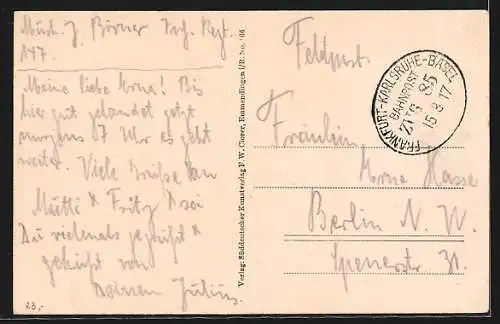 Musk. J. Börner Inf. Regt.
147.
Meine liebe Erna! Bis
hier gut gelandet jetzt
morgens 7 Uhr es geht
weiter. Viele Grüße an
Mutti & Fritz & sei
Du vielmals gegrüßt &
geküßt von
Deinem Julius.
23.-
Verlag: Süddeutscher Kunstverlag F. W. Clorer, Emmendingen i/B. No.
Feldpost.
FRANKFURT-KARLSRUHE-BASEL
BAHNPOST
ZUG 85
15 3 17
Fräulein
Erna Hasse
Berlin N. W.
Spenerstr 31.